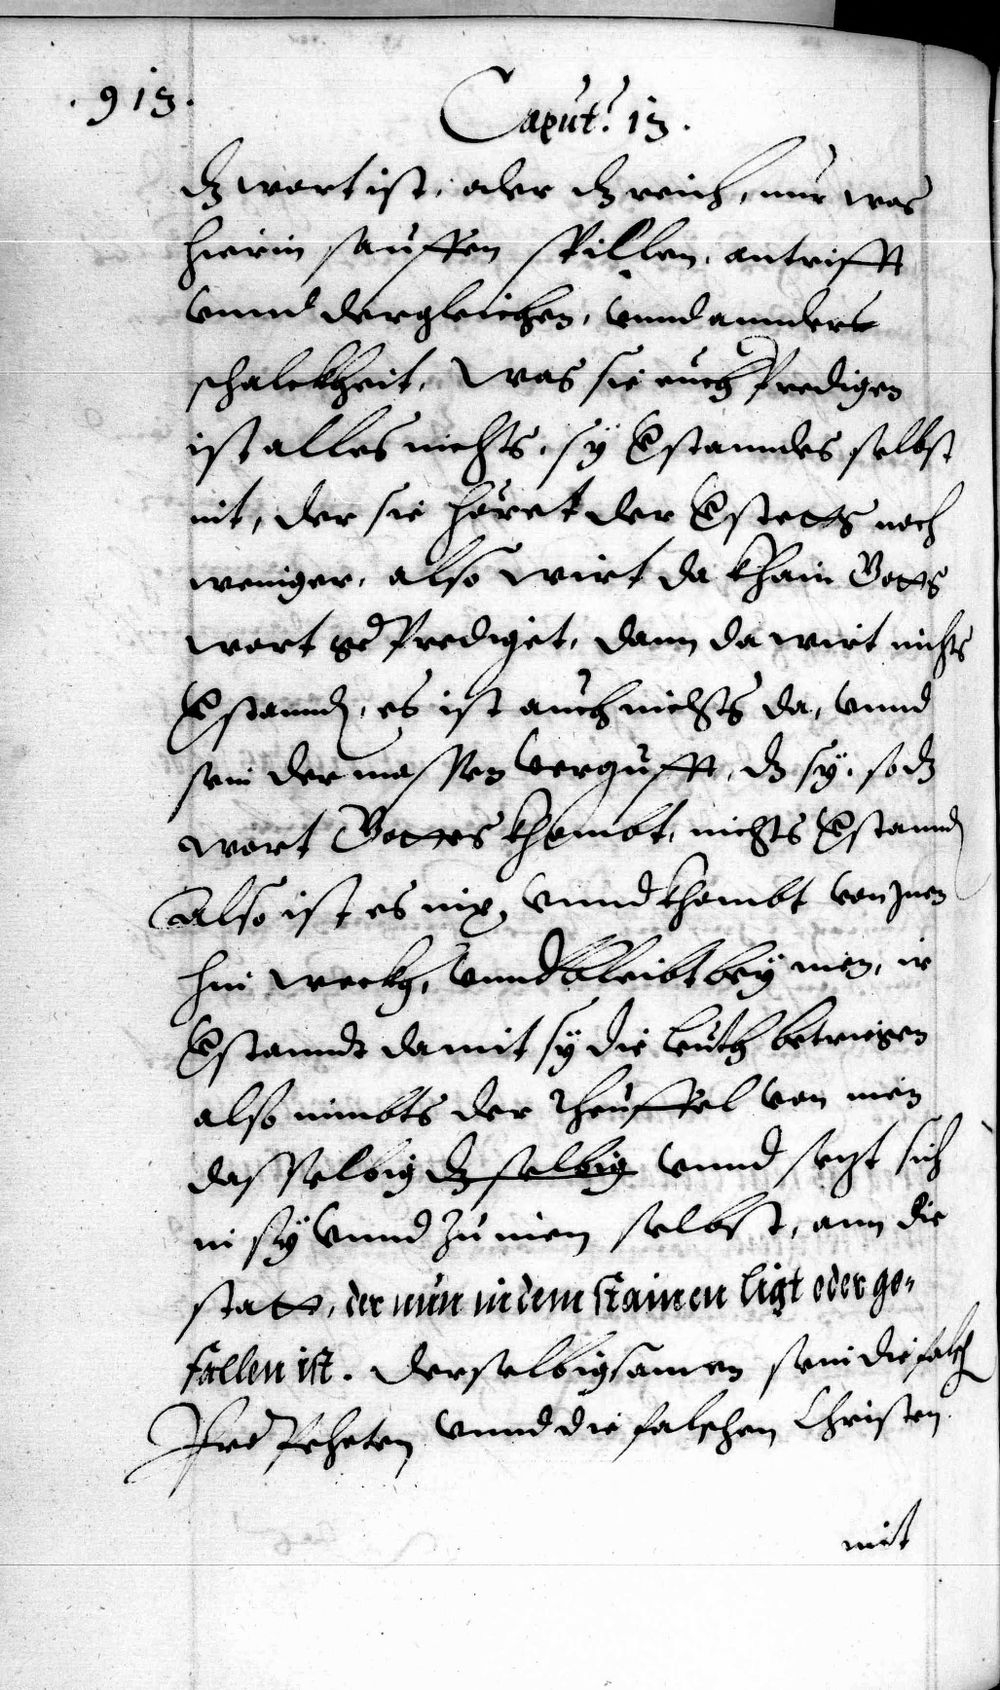 . 913.
Caput. 13.
dz wort ist, oder dz reich, nur was
hierin sauffen spillen, antrifft
vnnd dergleichen, vnnd annders
schalckheit, was sie euch Predigen
ist alles nichts, sy Verstanndes selbst
nit, der sie höret der Verstetts noch
weniger, also wirt da khain Gotts
wort ge Prediget, dann da wirt nichts
Verstannd, es ist auch nichts da, vnnd
sein der massen vergufft, dz sy, so dz
wort Gottes khombt, nichts Verstannd
Also ist es nix, vnnd khombt von Inen
hin weckh, vnnd bleibt bey inen, ir
Verstanndt damit sy die leuth betriegen
also nimbts der Theuffel von inen
dasselbig dz selbig vnnd sezt sich
in sy vnnd zu inen selbst, ann die
statt, der nun in dem stainen ligt oder ge-
fallen ist. derselbig samen sein die falsch
Pro Pheten vnnd die falschen Christen
mit